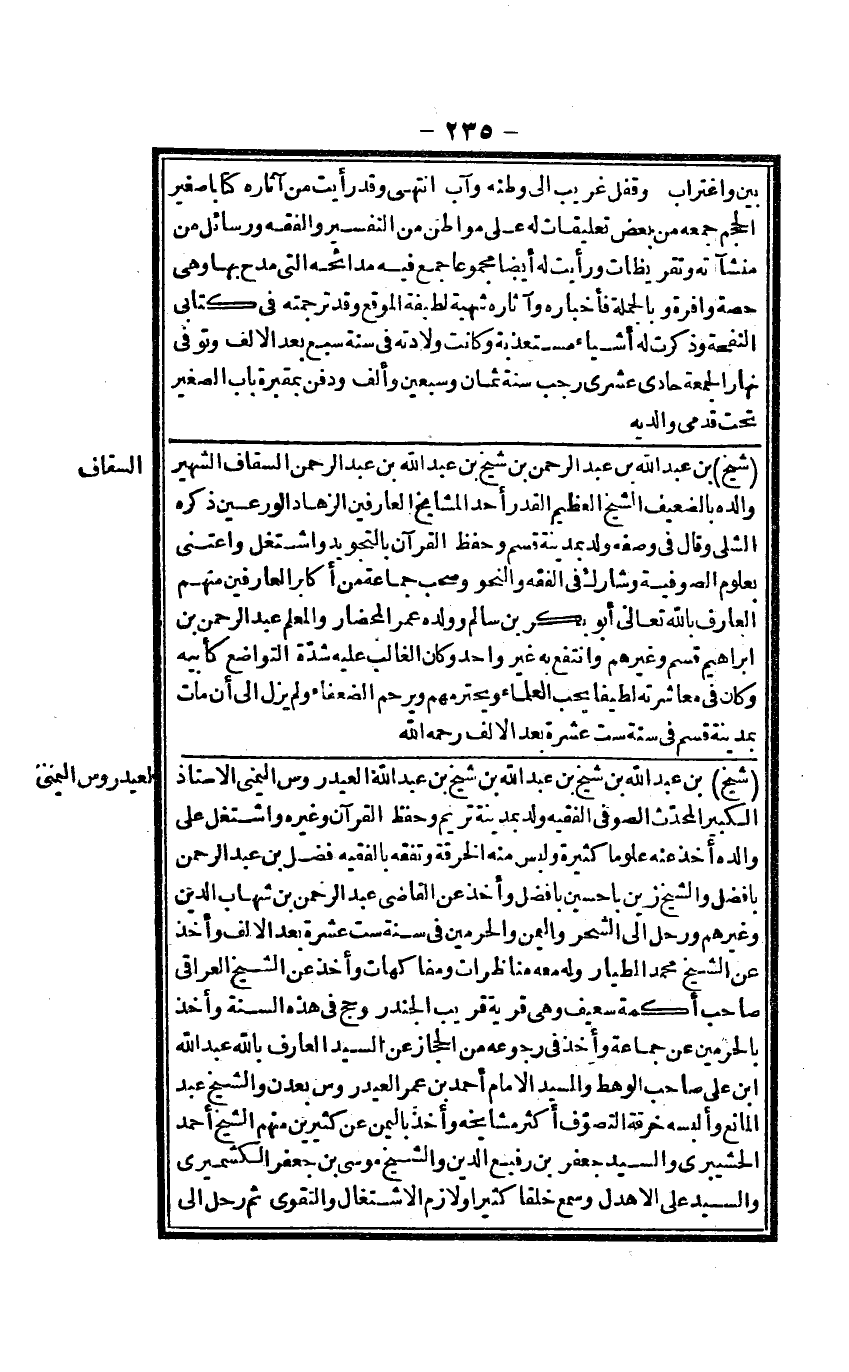 - ٢٣٥ -
بين واغتراب وقفل غريب الى وطنه وآب انتهى وقد رأيت من آثاره كتابا صغير
الحجم جمعه من بعض تعليقات له على مواطن من التفسير والفقه ورسائل من
منشآته وتقريظات ورأيت له أيضا مجموعا جمع فيه مدائحه التى مدح بها وهى
حصة وافرة وبالجملة فأخباره وآثاره شهية لطيفة الموقع وقد ترجمته فى كتابى
النفحة وذكرت له أشياء مستعذبة وكانت ولادته فى سنة سبع بعد الالف وتوفى
نهار الجمعة حادى عشرى رجب سنة ثمان وسبعين وألف ودفن بمقبرة باب الصغير
تحت قدمى والديه
السقاف
(شيخ) بن عبد الله بن عبد الرحمن بن شيخ بن عبد الله بن عبد الرحمن السقاف الشهير
والده بالضعيف الشيخ العظيم القدر أحد المشايخ العارفين الزهاد الورعين ذكره
الشلى وقال فى وصفه ولد بمدينة قسم وحفظ القرآن بالتجويد واشتغل واعتنى
بعلوم الصوفية وشارك فى الفقه والنحو وصحب جماعة من أكابر العارفين منهم
العارف بالله تعالى أبو بكر بن سالم وولده عمر المحضار والمعلم عبد الرحمن بن
ابراهيم قسم وغيرهم وانتفع به غير واحد وكان الغالب عليه شدّة التواضع كأبيه
وكان فى معاشرته لطيفا يحب العلماء ويحترمهم ويرحم الضعفاء ولم يزل الى أن مات
بمدينة قسم فى سنة ست عشرة بعد الالف رحمه الله
العيدروس اليمنى
(شيخ) بن عبد الله بن شيخ بن عبد الله بن شيخ بن عبد الله العيدروس اليمنى الاستاذ
الكبير المحدّث الصوفى الفقيه ولد بمدينة تريم وحفظ القرآن وغيره واشتغل على
والده أخذ عنه علوما كثيرة ولبس منه الخرقة وتفقه بالفقيه فضل بن عبد الرحمن
بافضل والشيخ زين باحسين بافضل وأخذ عن القاضى عبد الرحمن بن شهاب الدين
وغيرهم ورحل الى الشحر واليمن والحرمين فى سنة ست عشرة بعد الالف وأخذ
عن الشيخ محمد الطيار وله معه مناظرات ومفاكهات وأخذ عن الشيخ العراقى
صاحب أكمة سعيف وهى قرية قريب الجند وحج فى هذه السنة وأخذ
بالحرمين عن جماعة وأخذ فى رجوعه من الحجاز عن السيد العارف بالله عبد الله
ابن على صاحب الوهط والسيد الامام أحمد بن عمر العيدروس بعدن والشيخ عبد
المانع وألبسه خرقة التصوّف أكثر مشايخه وأخذ باليمن عن كثيرين منهم الشيخ أحمد
الحشيبرى والسيد جعفر بن رفيع الدين والشيخ موسى بن جعفر الكشميرى
والسيد على الاهدل وسمع خلقا كثيرا ولازم الاشتغال والتقوى ثم رحل الى